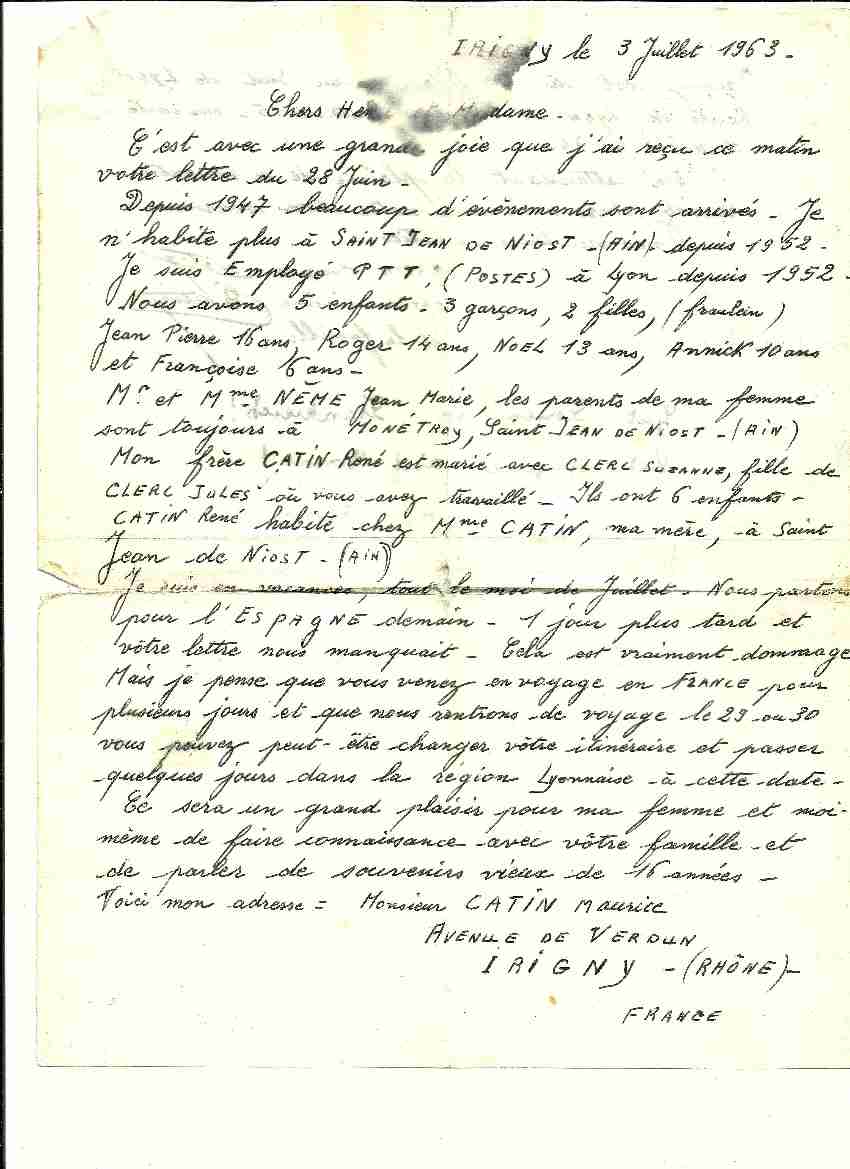 IRIGNY le 3 Juillet 1963.
Chers et Madame.
C'est avec une grande joie que j'ai reçu ce matin
votre lettre du 28 Juin.
Depuis 1947 beaucoup d'évènements sont arrivés - Je
n'habite plus à SAINT JEAN DE NIOST - (AIN) - depuis 1952.
Je suis Employé PTT, (POSTES) à Lyon depuis 1952.
Nous avons 5 enfants - 3 garçons, 2 filles, (fraulein)
Jean Pierre 16 ans, Roger 14 ans, NOEL 13 ans, ANNICK 10 ans
et Françoise 6 ans -
Mr et Mme NÊME Jean Marie, les parents de ma femme
sont toujours à MONÉTROY, Saint JEAN DE NIOST - (AIN)
Mon frère CATIN René est marié avec CLERC SUZANNE, fille de
CLERC JULES où vous avez travaillé - Ils ont 6 enfants -
CATIN René habite chez Mme CATIN, ma mère, à Saint
Jean de NIOST - (AIN)
Je suis en vacances, tout le moi de Juillet. Nous partons
pour l'ESPAGNE demain - 1 jour plus tard et
vôtre lettre nous manquait - Cela est vraiment dommage
Mais je pense que vous venez en voyage en FRANCE pour
plusieurs jours et que nous rentrons de voyage le 29 ou 30
vous pouvez peut-être changer vôtre itinéraire et passer
quelques jours dans la région Lyonnaise à cette date -
Ce sera un grand plaisir pour ma femme et moi-
même de faire connaissance avec vôtre famille et
de parler de souvenirs vieux de 16 années -
Voici mon adresse = Monsieur CATIN Maurice
AVENUE DE VERDUN
IRIGNY - (RHÔNE) -
FRANCE